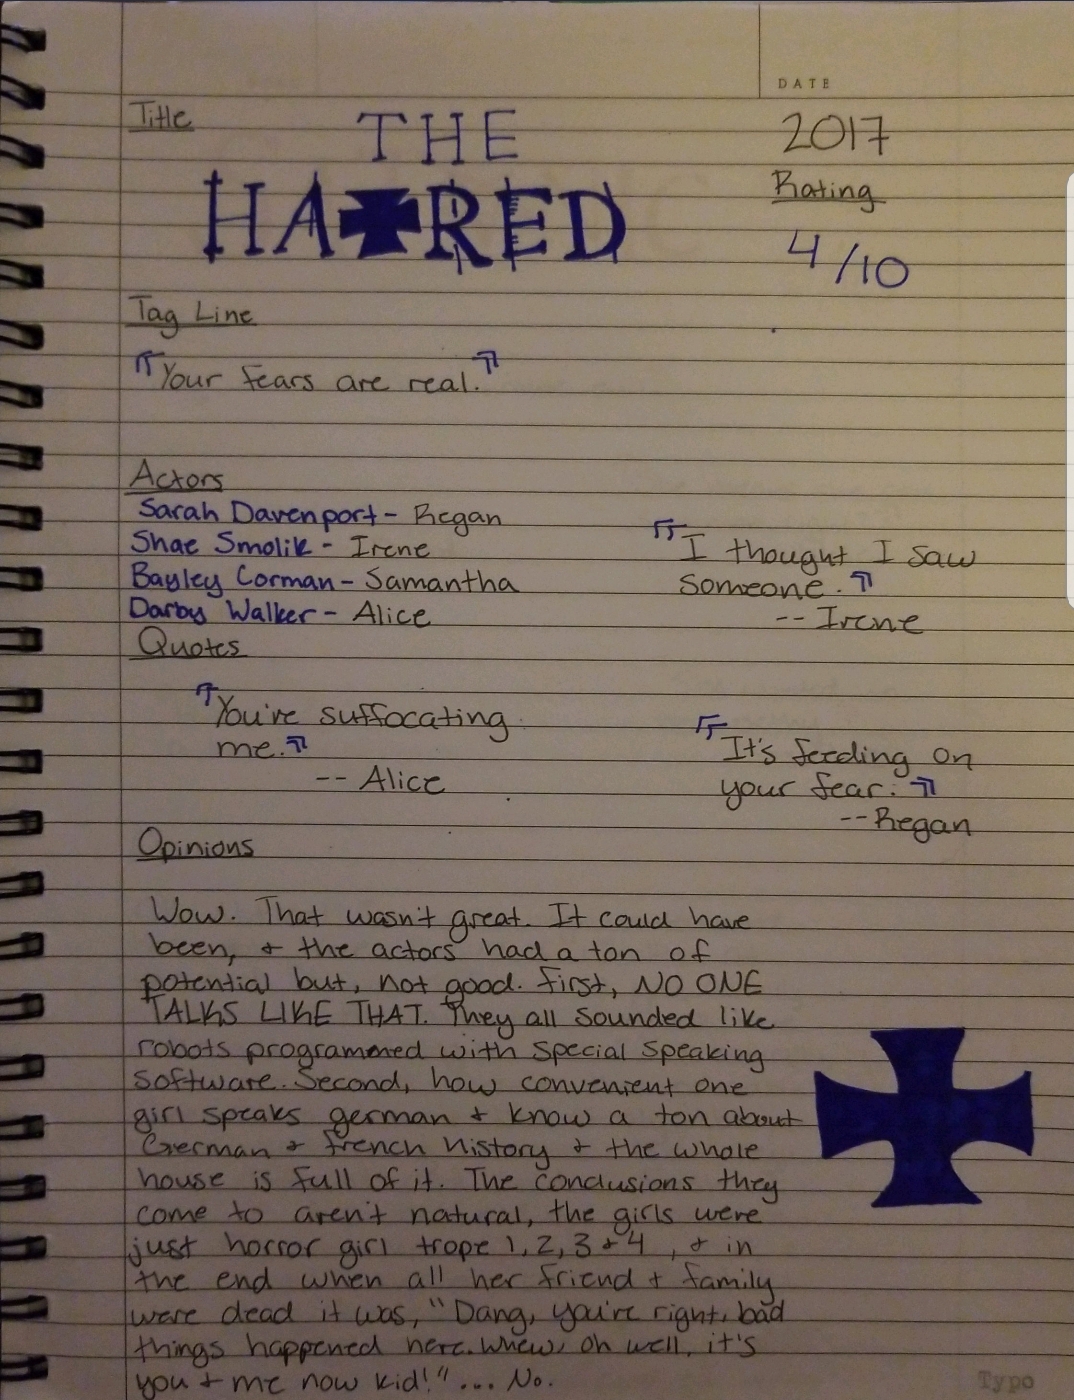 DATE
Title
THE
HATRED
2017
Rating
4/10
Tag Line
"Your fears are real."
Actors
Sarah Davenport - Regan
Shae Smolik - Irene
Bayley Corman - Samantha
Darby Walker - Alice
"I thought I saw
someone."
-- Irene
Quotes
"You're suffocating
me."
-- Alice
"It's feeding on
your fear."
-- Regan
Opinions
Wow. That wasn't great. It could have
been, & the actors had a ton of
potential but, not good. First, NO ONE
TALKS LIKE THAT. They all sounded like
robots programmed with special speaking
software. Second, how convenient one
girl speaks german & know a ton about
German & French history & the whole
house is full of it. The conclusions they
come to aren't natural, the girls were
just horror girl trope 1, 2, 3 & 4, & in
the end when all her friend & family
were dead it was, "Dang, you're right, bad
things happened here. Whew, oh well, it's
you & me now kid!"... No.
Typo